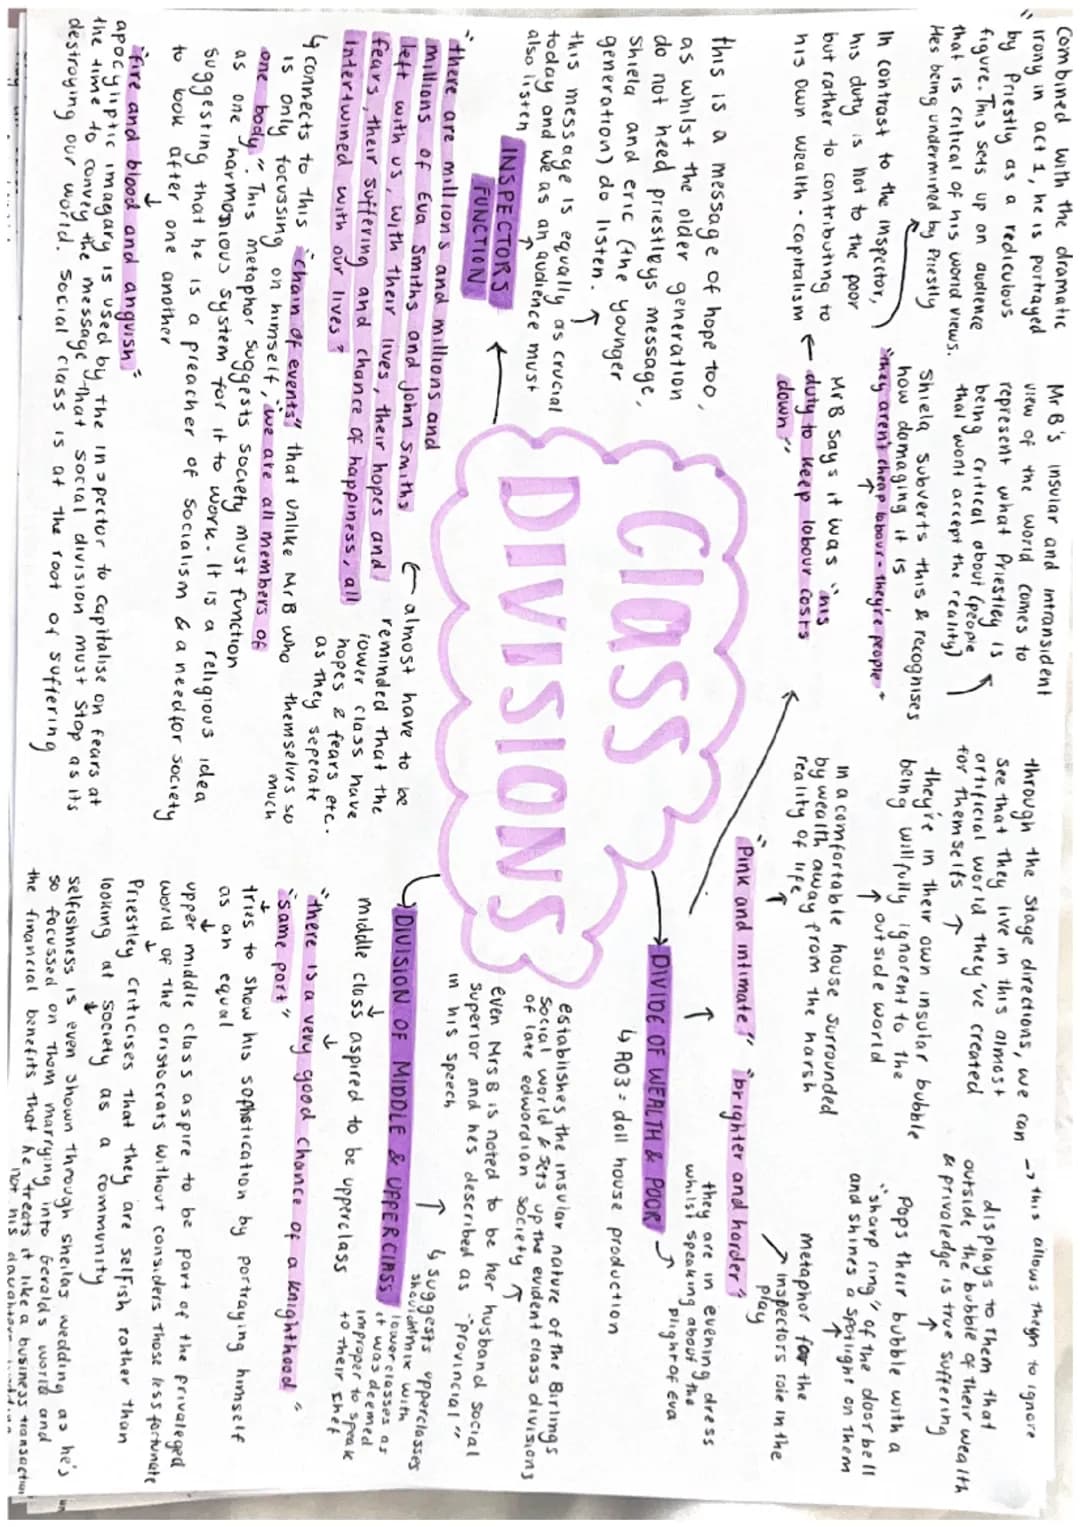 Combined with the dramatic
irony in act 1, he is portrayed
by Priestly as a rediculous
figure. This sets up an audience
that is critical of his world views.
Hes being undermined by Priestly
In contrast to the inspector,
his duty is not to the poor
but rather to contributing to
his own wealth - capitalism
Mr B's insular and intransident
view of the world comes to
represent what Priestley is
being critical about (people
that wont accept the reality)
Shiela subverts this & recognises
how damaging it is
"they arent cheap labour - they're people"
Mr B says it was "his
duty to keep labour costs
down"
through the stage directions, we can
see that they live in this almost
artificial world they've created
for themselfs
they're in their own insular bubble
being willfully ignorent to the
outside world
in a comfortable house surrounded
by wealth away from the harsh
reality of life
→ this allows them to ignore
displays to them that
outside the bubble of their wealth
& privaledge is true suffering
Pops their bubble with a
"sharp ring" of the door bell
and shines a spotlight on them
metaphor for the
inspectors role in the
play
"Pink and intimate" "brighter and harder"
they are in evening dress
whilst speaking about the
plight of Eva
DIVIDE OF WEALTH & POOR
↳ AO3 = doll house production
this is a message of hope too,
as whilst the older generation
do not need priestleys message,
Shiela and eric (the younger
generation) do listen.
this message is equally as crucial
today and we as an audience must
also listen
INSPECTORS
FUNCTION
Class
DIVISIONS
"there are millions and millions and
millions of Eva Smiths and John Smiths
left with us, with their lives, their hopes and
fears, their suffering and chance of happiness, all
intertwined with our lives"
almost have to be
reminded that the
lower class have
hopes & fears etc.
as they seperate
themselves so
much
↳ connects to this "chain of events" that unlike Mr B who
is only focussing on himself, "we are all members of
one body". This metaphor suggests society must function
as one harmonious system for it to work. It is a religious idea
suggesting that he is a preacher of socialism & a need for society
to look after one another
"fire and blood and anguish"
apocyliptic imagary is used by the inspector to capitalise on fears at
the time to convey the message that social division must stop as its
destroying our world. Social class is at the root of suffering
establishes the insular nature of the Birlings
social world & sets up the evident class divisions
of late edwardian society
even Mrs B is noted to be her husband social
superior and hes described as "provincial"
in his speech
↳ suggests upperclasses
shouldnt mix with
lower classes as
it was deemed
improper to speak
to their chef
DIVISION OF MIDDLE & UPPERCLASS
middle class aspired to be upperclass
"there is a very good chance of a knighthood"
"same port"
tries to show his sophistication by portraying himself
as an equal
upper middle class aspire to be part of the privaleged
world of the aristocrats without considers those less fortunate
Priestley criticises that they are selfish rather than
looking at society as a community
selfishness is even shown through sheilas wedding as he's
so focussed on them marrying into Geralds world and
the financial benefits that he treats it like a business transaction
not his